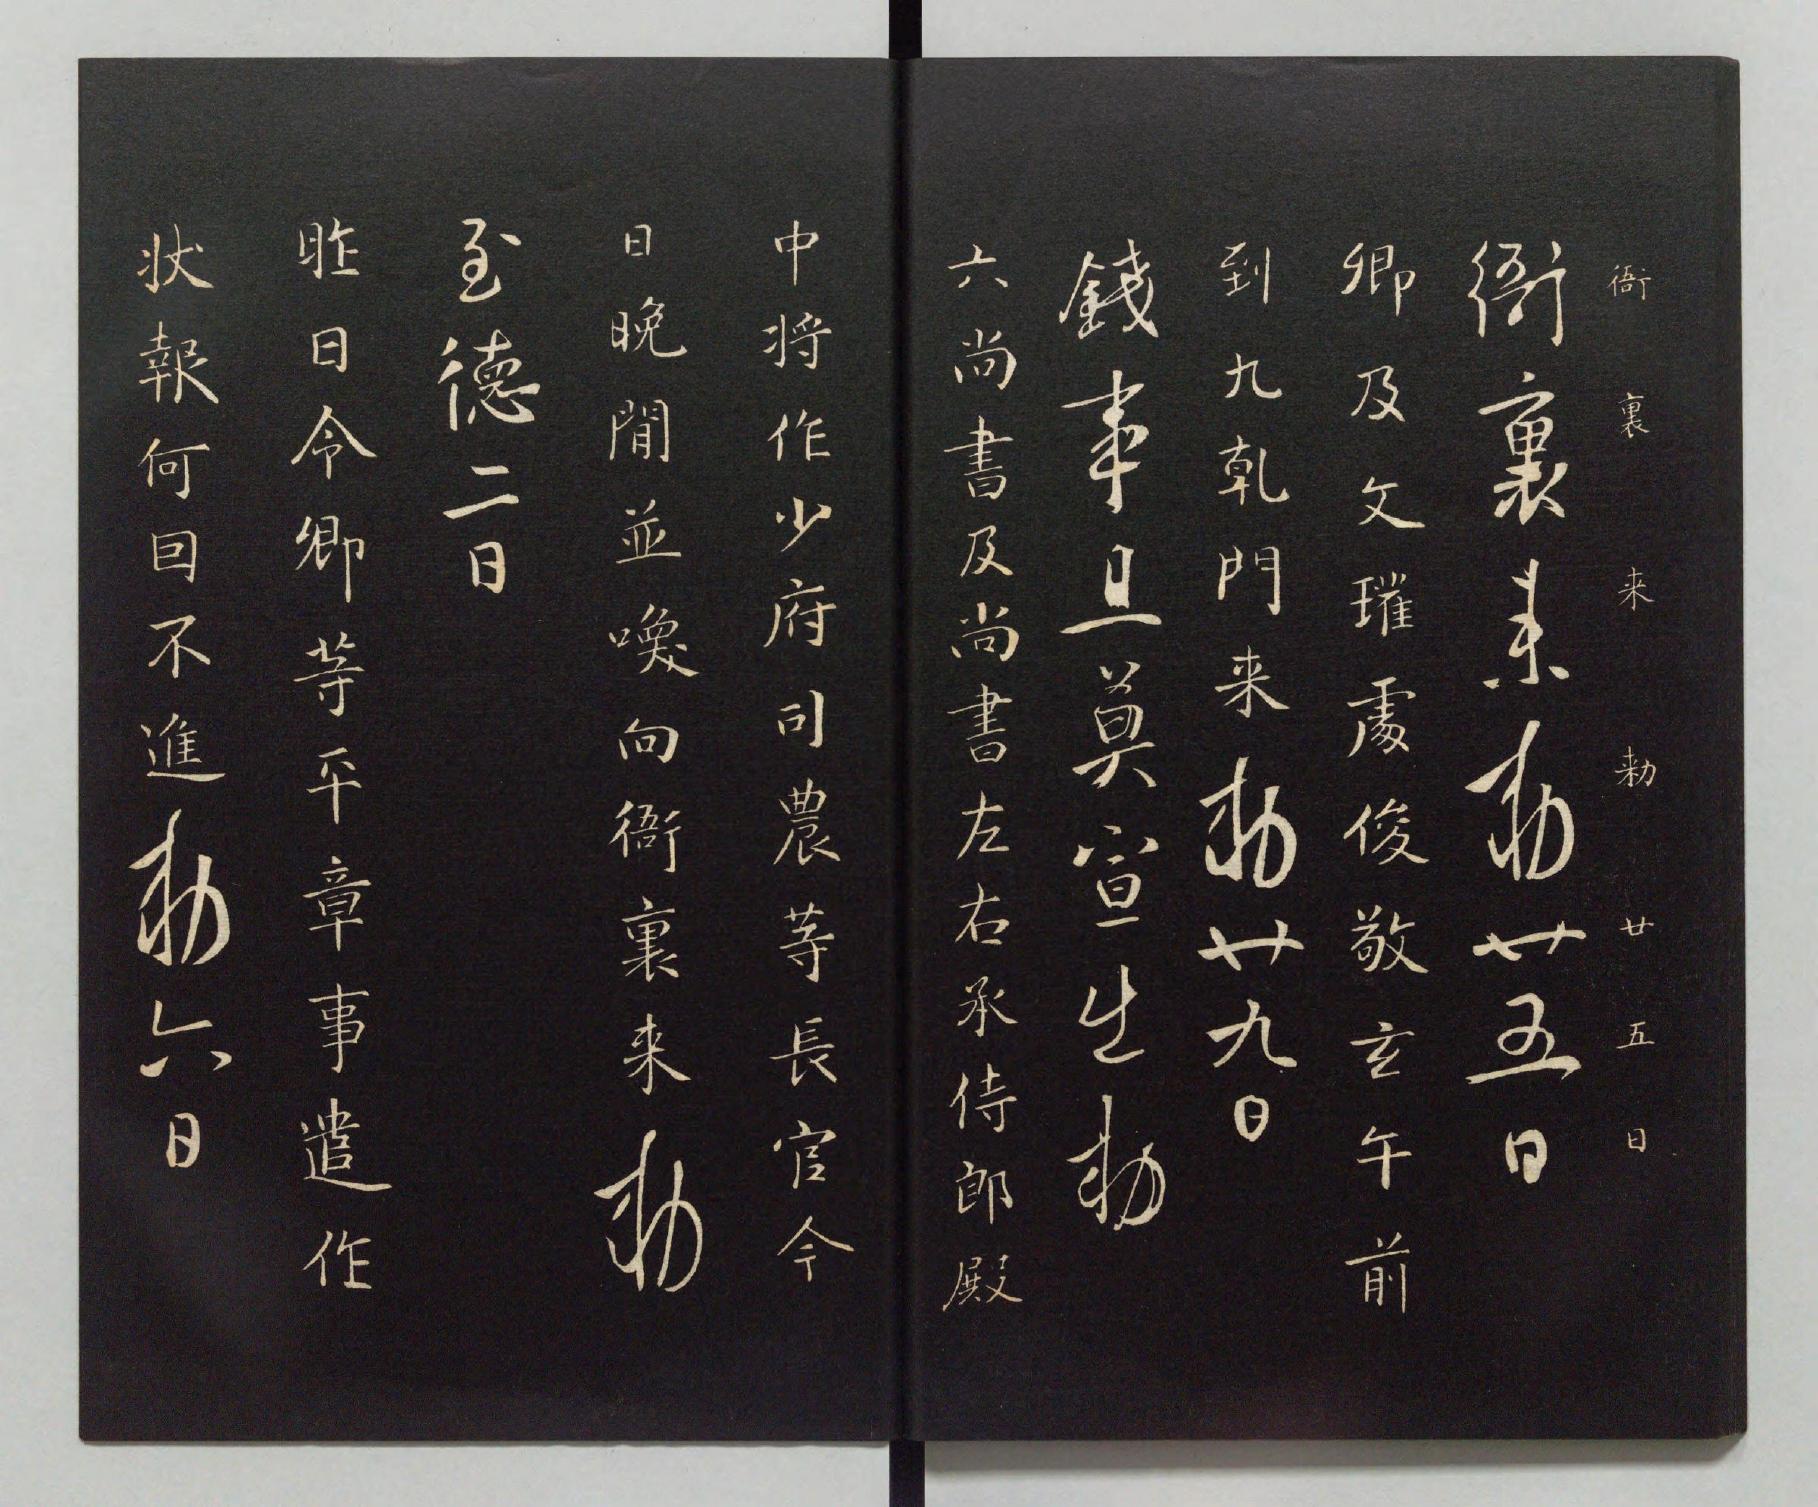 衙裏来勅廿五日
衙裏来勅廿五日
卿及文瓘處俊敬玄午前
到九乹門来勅廿九日
錢事且莫宣生勅
六尚書及尚書左右承侍郎殿
中将作少府司農等長官今
日晚間並喚向衙裏来勅
至德二日
昨日令卿等平章事遣作
状報何因不進勅六日